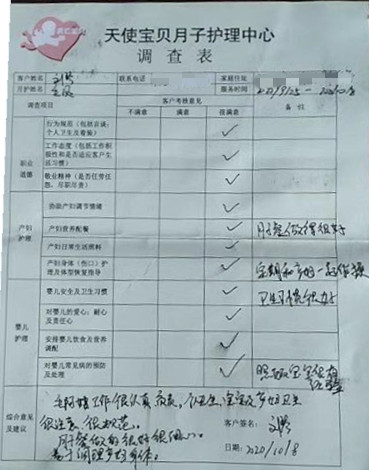 天使宝贝月子护理中心
调查表
客户姓名 联系电话 家庭住址
月护姓名 服务时间
调查项目 客户考核意见 备注
不满意 满意 很满意
职业道德
行为规范(包括言谈、个人卫生及着装)
工作态度(包括工作积极性和是否适应客户生活习惯)
敬业精神(是否任劳任怨、尽职尽责)
产妇护理
协助产妇调节情绪
产妇营养配餐 月子餐做得很好
产妇日常生活照料
产妇身体(伤口)护理及体型恢复指导
婴儿护理
婴儿安全及卫生习惯 卫生习惯很好
对婴儿的爱心、耐心及责任心
安排婴儿饮食及营养调配
对婴儿常见病的预防及处理 照顾宝宝很有经验
综合意见及建议
工作很认真负责,
很注意、很规范。
月子餐做的很好很细心。
客户签名:
日期:2020/10/8